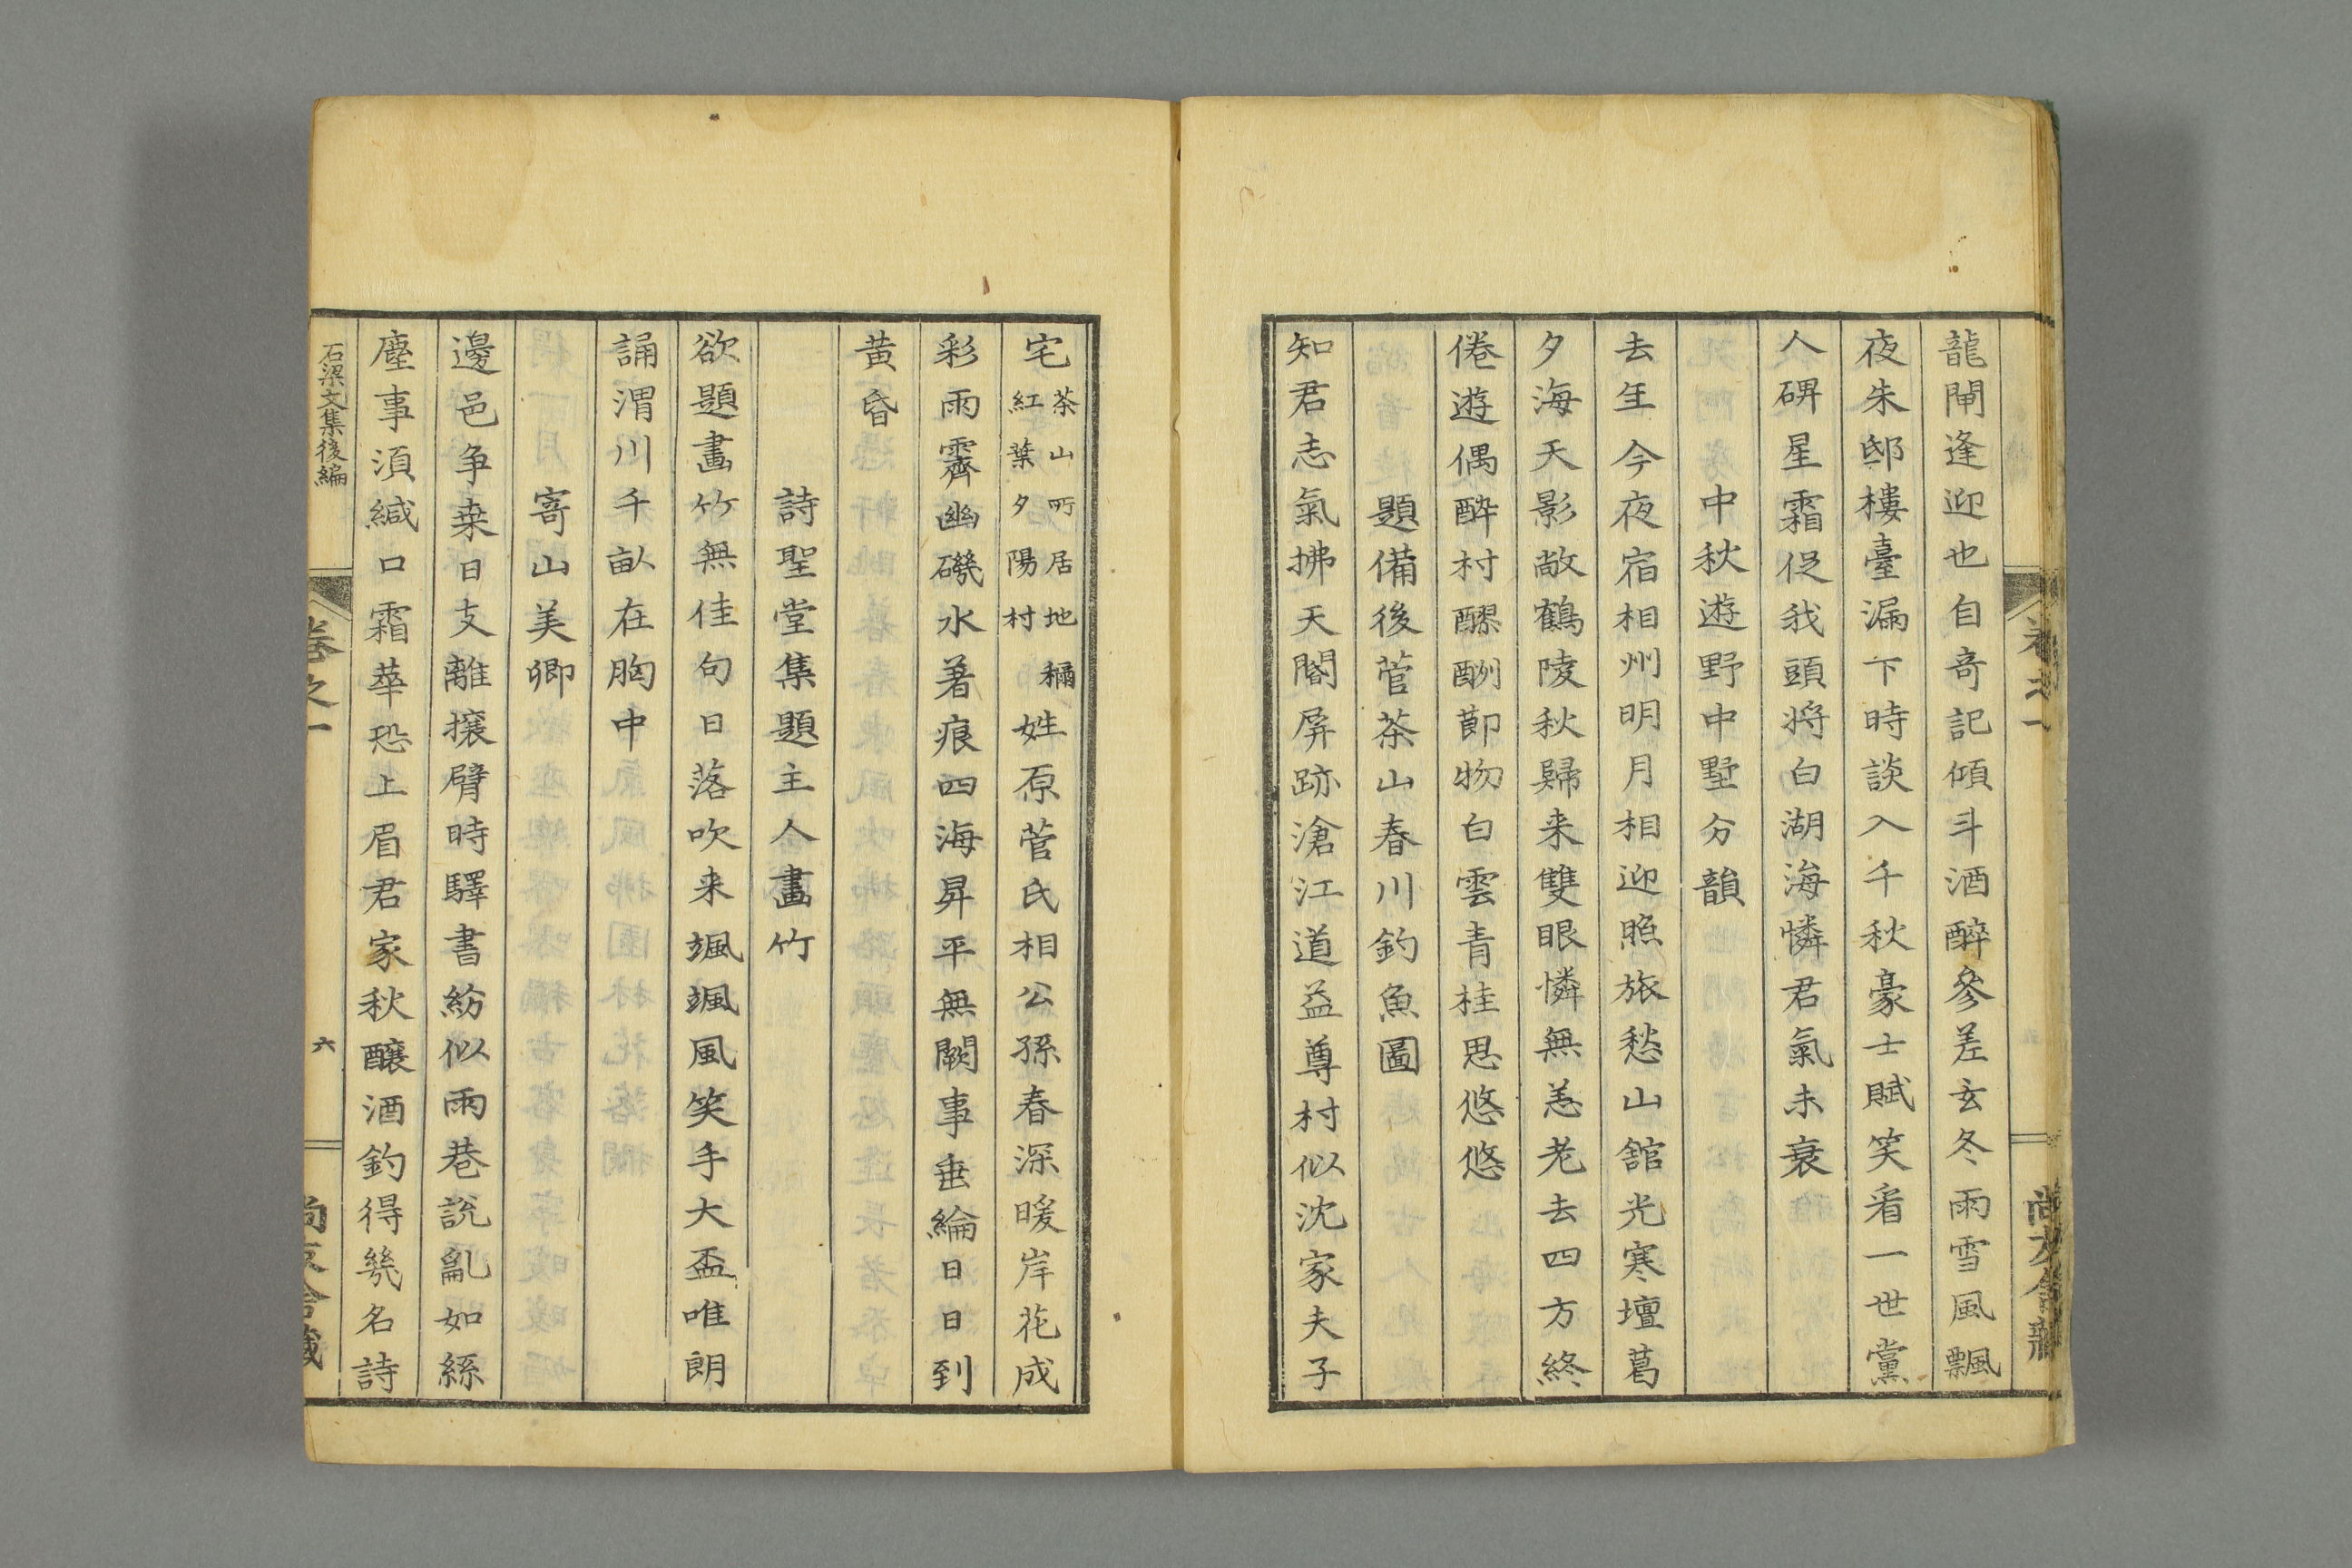 龍閘逢迎也自奇記傾斗酒醉參差玄冬雨雪風飄
夜朱邸樓臺漏下時談入千秋豪士賦笑看一世黨
人碑星霜促我頭将白湖海憐君氣未衰
中秋遊野中墅分韻
去年今夜宿相州明月相迎照旅愁山館光寒壇葛
夕海天影敞鶴陵秋歸来雙眼憐無恙老去四方終
倦遊偶酔村醪酬節物白雲青桂思悠悠
題備後菅茶山春川釣魚圖
知君志氣拂天閽屏跡滄江道益尊村似沈家夫子
宅茶山所居地稱紅葉夕陽村姓原菅氏相公孫春深暖岸花成
彩雨霽幽磯水著痕四海昇平無闕事垂綸日日到
黄昏
詩聖堂集題主人畫竹
欲題畫竹無佳句日落吹来颯颯風笑手大盃唯朗
誦渭川千畝在胸中
寄山美卿
邊邑争桒日支離攘臂時驛書紛似雨巷説亂如絲
塵事須緘口霜華恐上眉君家秋釀酒釣得幾名詩
石梁文集後編
卷之一
六